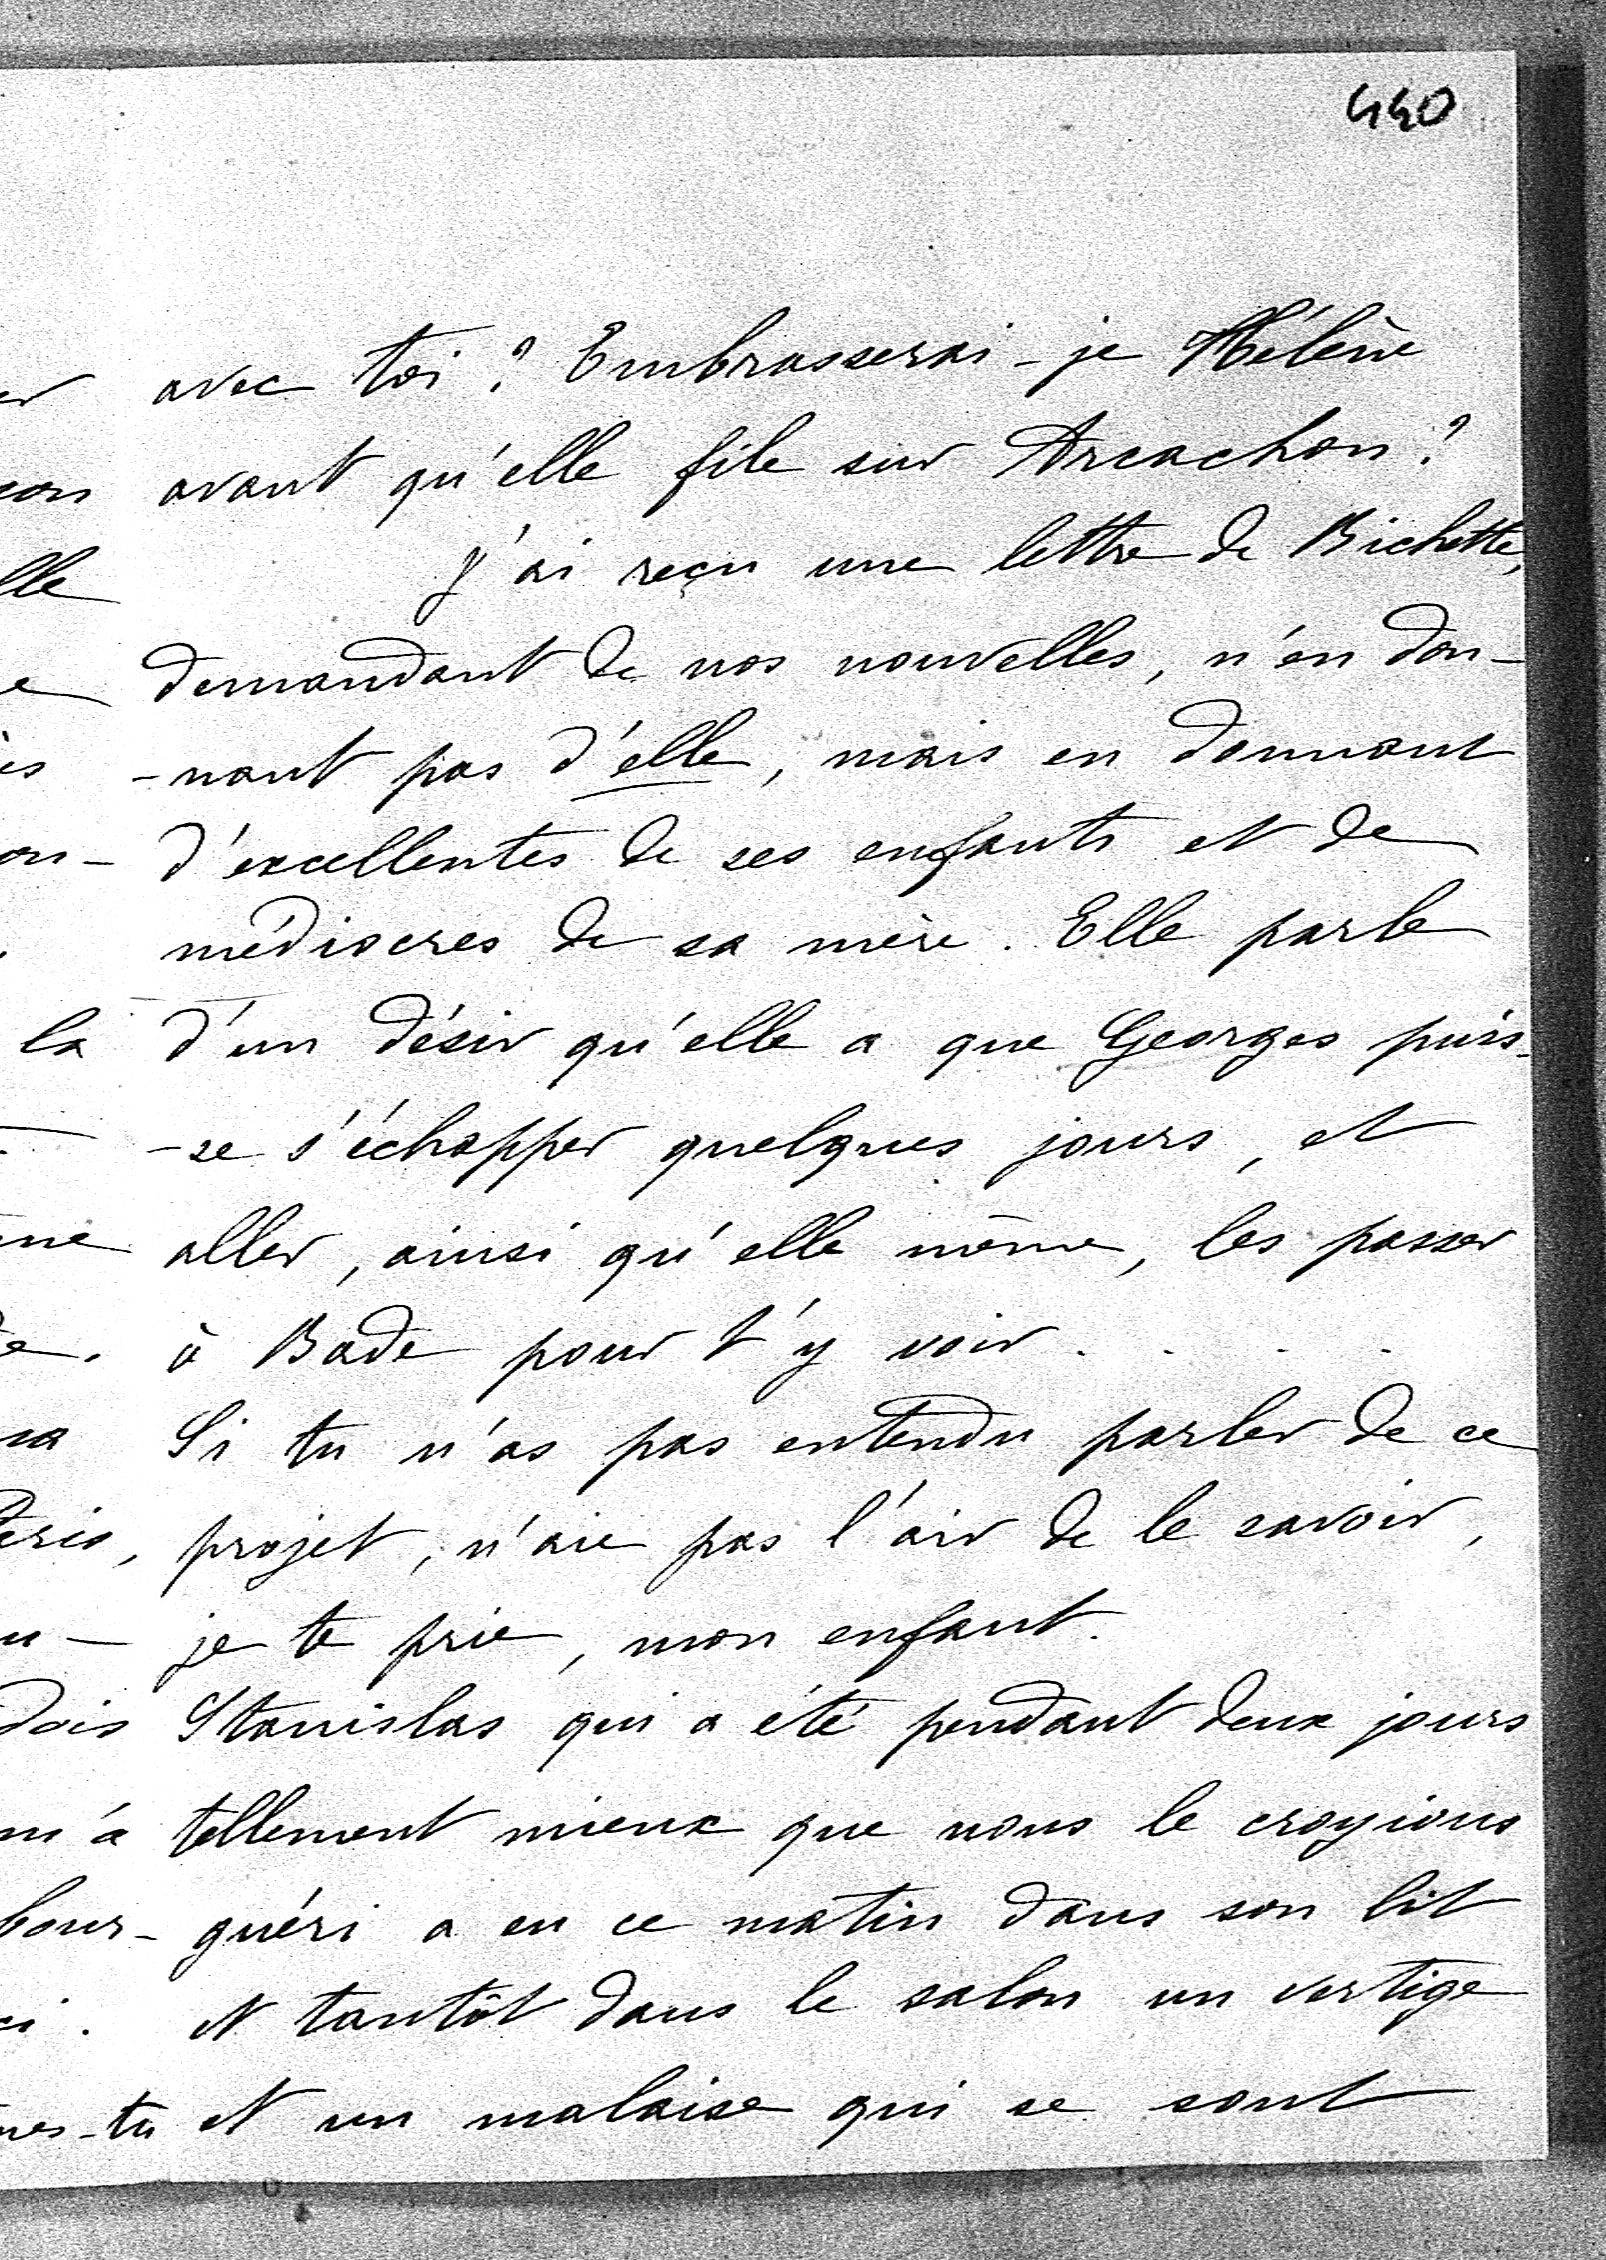 440
avec toi ? Embrasserai-je Hélène
avant qu'elle file sur Arcachon ?
J'ai reçu une lettre de Bichette,
demandant de nos nouvelles, n'en don-
-nant pas d'elle, mais en donnant
d'excellentes de ses enfants et de
médiocres de sa mère. Elle parle
d'un désir qu'elle a que Georges puis-
-se s'échapper quelques jours, et
aller, ainsi qu'elle même, les passer
à Bade pour t'y voir . . . .
Si tu n'as pas entendu parler de ce
projet, n'aie pas l'air de le savoir,
je te prie, mon enfant.
Stanislas qui a été pendant deux jours
tellement mieux que nous le croyions
guéri a eu ce matin dans son lit
et tantôt dans le salon un vertige
et un malaise qui se sont